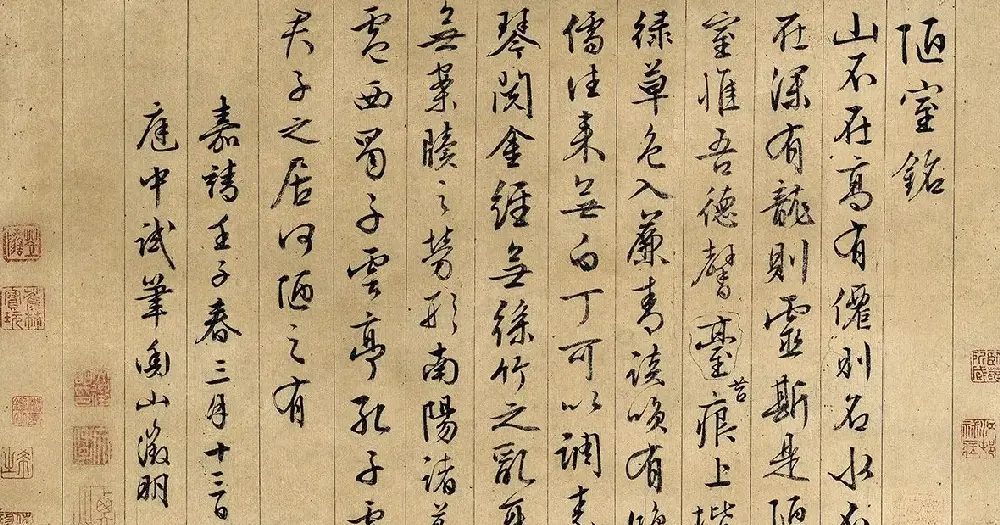 陋室銘
山不在高有僊則名水不
在深有龍則靈斯是陋
室惟吾德馨臺痕上堦
苔
緑草色入簾青談唉有鴻
儒往来無白丁可以調素
琴閲金經無絲竹之亂耳
無案牘之勞形南陽諸葛
廬西蜀子雲亭孔子云
君子之居何陋之有
嘉靖壬子春三月十三日
庭中試筆衡山徵明